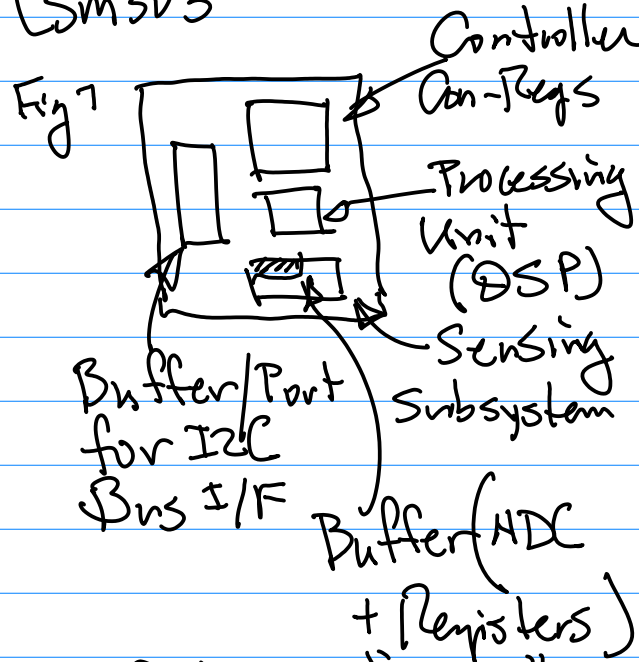 LSM303
Fig 1
Controller
Con-Regs
Processing
Unit
(DSP)
Sensing
Subsystem
Buffer/Port
for I2C
Bus I/F
Buffer (ADC
+ Registers)